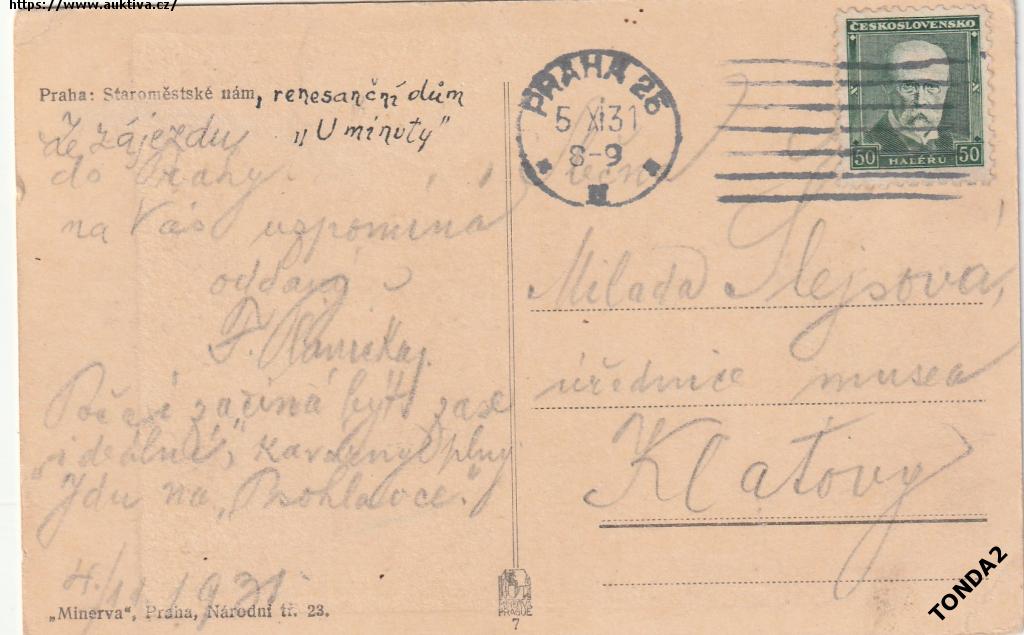 https://www.auktiva.cz/
Praha: Staroměstské nám, renesanční dům
„U minuty"
Ze zájezdu
do Prahy
na Vás vzpomíná
oddaný
F.
Počasí začíná být zase
„ideální", kavárny plny
Jdu na „Psohlavce."
4./11. 1931.
„Minerva", Praha, Národní tř. 23.
PRAHA 26
5 XI 31
8-9
ČESKOSLOVENSKO
50 HALÉRŮ 50
Slečna
Milada Slejsová,
úřednice musea
Klatovy
PRAGUE
7
TONDA2